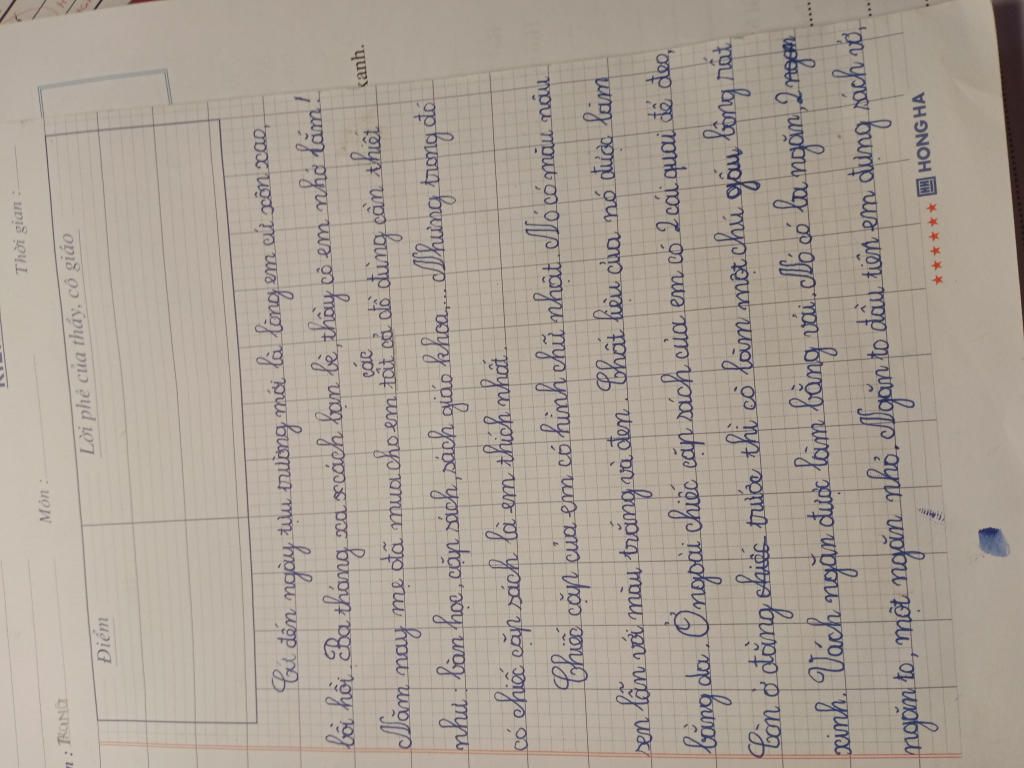 Thời gian :
Môn :
Điểm
Lời phê của thầy, cô giáo
anh.
Cứ đến ngày tựu trường mới là lòng em cứ xôn xao,
bồi hồi. Ba tháng xa xcách bạn bè, thầy cô em nhớ lắm!
Năm nay mẹ đã mua cho em tất cả các đồ dùng cần thiết
như: bàn học, cặp sách, sách giáo khoa,... Nhưng trong đó
có chiếc cặp sách là em thích nhất.
Chiếc cặp của em có hình chữ nhật. Nó có màu nâu
xen lẫn với màu trắng và đen. Chất liệu của nó được làm
bằng da. Ở ngoài chiếc cặp sách của em có 2 cái quai để đeo,
Còn ở đằng chiếc trước thì có làm một chú gấu bông rất
xinh. Vách ngăn được làm bằng vải. Nó có ba ngăn, 2 ngăn
ngăn to, một ngăn nhỏ. Ngăn to đầu tiên em đựng sách vở,
HONG HA